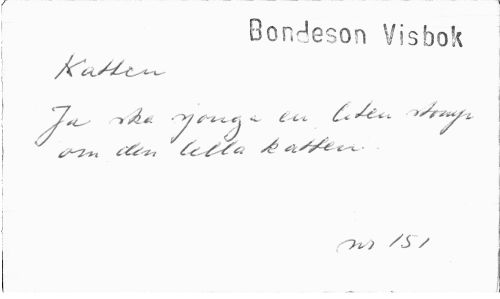 Bondeson Visbok
Katten
Ja ska sjonga en liten stomp
om den lella katten.
nr 151